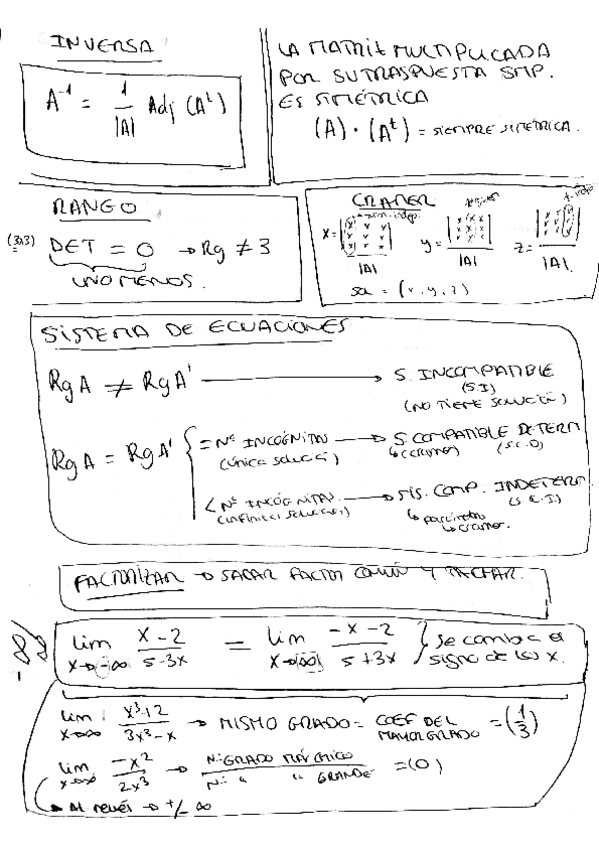 INVERSA
A⁻¹ = 1/|A| Adj (Aᵗ)
LA MATRIZ MULTIPLICADA
POR SU TRASPUESTA SMP.
ES SIMÉTRICA
(A) · (Aᵗ) = SIEMPRE SIMÉTRICA.
RANGO
(3x3) DET = 0 → Rg ≠ 3
UNO MENOS.
CRAMER
x = |A| y = |A| z = |A|
sol = (x, y, z)
SISTEMA DE ECUACIONES
Rg A ≠ Rg A' → S. INCOMPATIBLE
(S.I)
(NO TIENE SOLUCIÓ)
Rg A = Rg A' { = Nº INCÓGNITAS → S. COMPATIBLE DETERM
(única solució) ↳ (cramer) (S.C.D)
< Nº INCÓGNITAS. → SIS. COMP. INDETERM
(infinitas soluciones) ↳ parámetro (S.C.I.)
↳ cramer.
FACTORIZAR → SACAR FACTOR COMÚN Y TACHAR.
lim x→-∞ x-2/5-3x = lim x→∞ -x-2/5+3x } se cambia el
signo de las x.
lim x→∞ x³+2/3x³-x → MISMO GRADO = COEF DEL MAYOR GRADO = (1/3)
lim x→∞ -x²/2x³ → Nº GRADO MÁS CHICO/Nº " " GRANDE = (0)
Al revés → +/- ∞